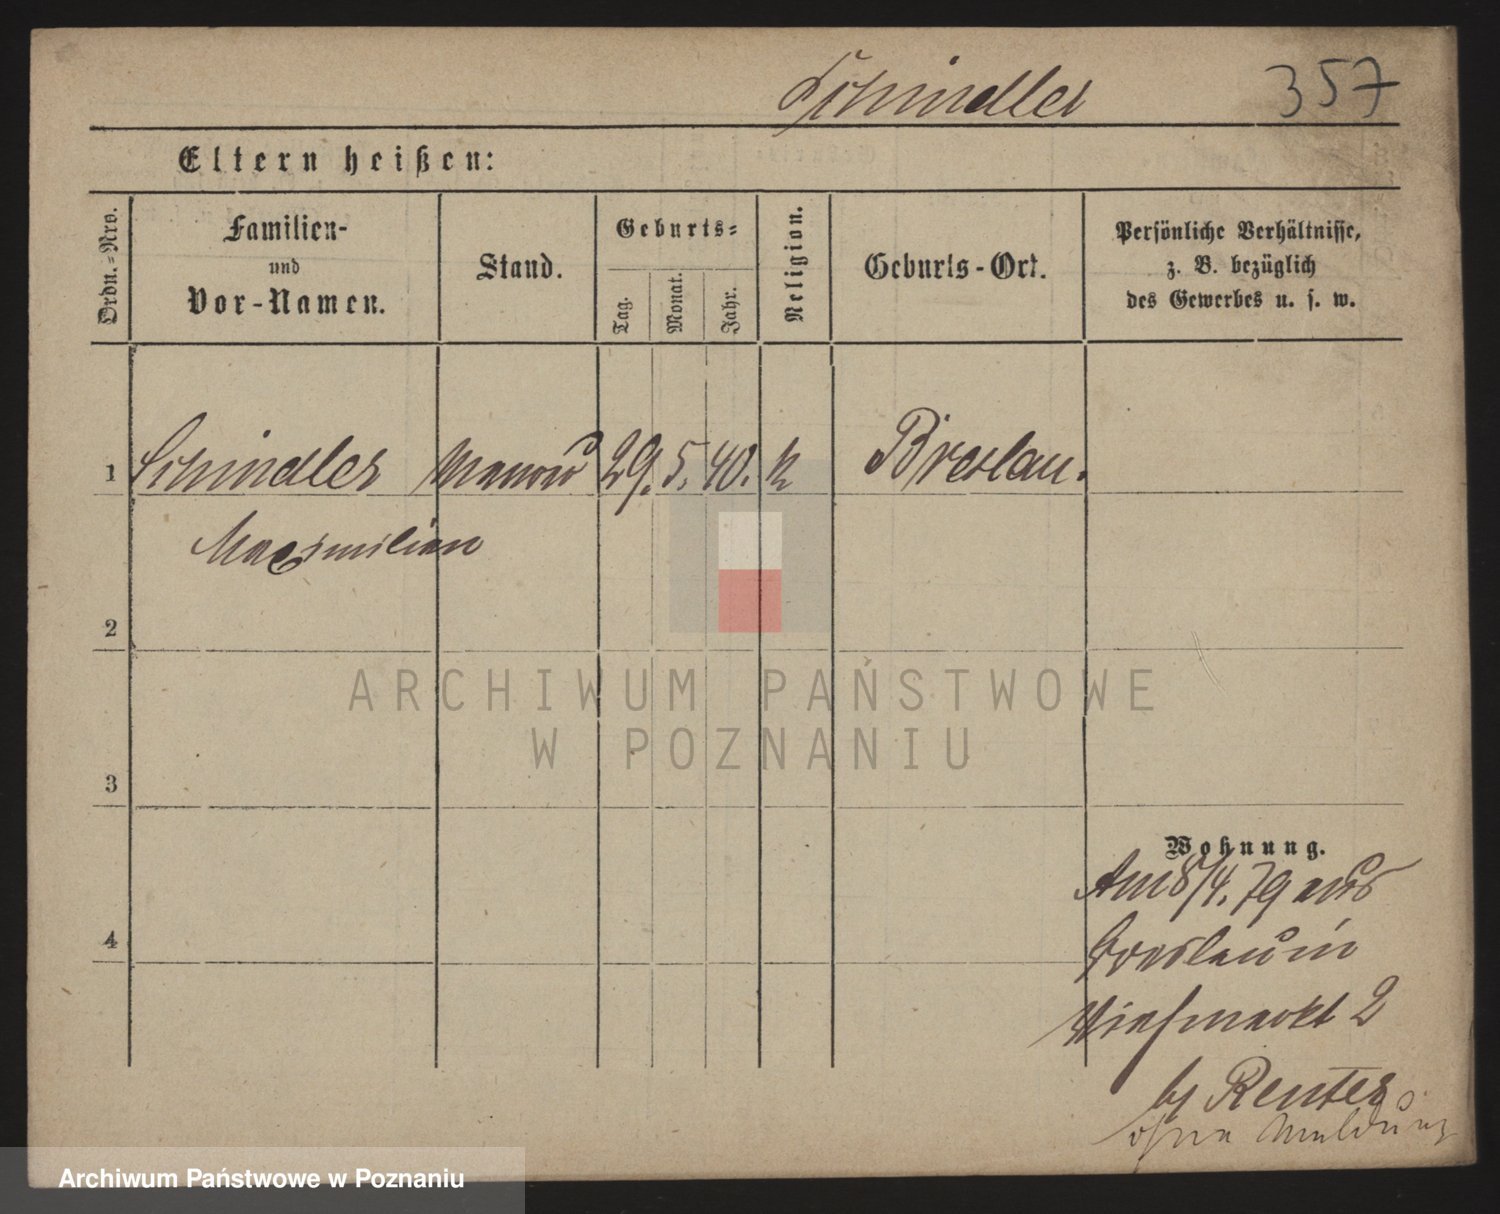 Schindler 357
Eltern heißen:
Ordn.-Nro.
Familien-
und
Vor-Namen.
Stand.
Geburts-
Tag.
Monat.
Jahr.
Religion.
Geburts-Ort.
Persönliche Verhältnisse,
z. B. bezüglich
des Gewerbes u. s. w.
1 Schindler 29. 5. 40. k Breslau.
Maximilian
2
ARCHIWUM PAŃSTWOWE
W POZNANIU
3
Wohnung.
Am 8/4. 79 aus
4
Breslau in
Viehmarkt 2
by Renter
ohne Meldung
Archiwum Państwowe w Poznaniu